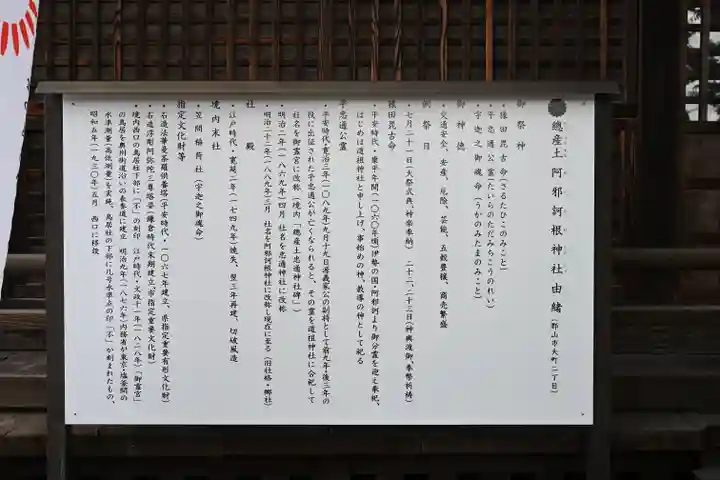 總産土 阿邪訶根神社 由緒 (郡山市大町二丁目)
御祭神
・猿田毘古命(さるたひこのみこと)
・平忠通公霊(たいらのただみちこうのれい)
・宇迦之御魂命(うかのみたまのみこと)
御神徳
・交通安全、安産、厄除、芸能、五穀豊穣、商売繁盛
例祭日
・七月二十一日(大祭式典、神楽奉納) 二十二、二十三日(神輿渡御、奉幣祈祷)
猿田毘古命
・平安時代・康平年間(一〇六〇年頃)伊勢の国・阿邪訶より御分霊を迎え奉祀、
はじめは道祖神社と申し上げ、事始めの神、教導の神として祀る
平忠通公霊
・平安時代・寛治三年(一〇八九年)九月十九日源義家公の副将として前九年・後三年の
役に出征された平忠通公が亡くなられると、その霊を道祖神社に合祀して
社名を御霊宮に改称(境内「總産土忠通神社碑」)
明治二年(一八六九年)四月 社名を忠通神社に改称
・明治二十二年(一八八九年)三月 社名を阿邪訶根神社に改称し現在に至る(旧社格・郷社)
社殿
・江戸時代・寛延二年(一七四九年)焼失、翌三年再建、切破風造
境内末社
・笠間稲荷社(宇迦之御魂命)
指定文化財等
・石造法華曼荼羅供養塔(平安時代・一〇六七年建立、県指定重要有形文化財)
・石造浮彫阿弥陀三尊塔婆(鎌倉時代末期建立、市指定重要文化財)
・境内西口の鳥居柱下部に「不」の刻印 江戸時代・文政十一年(一八二八年)「御霊宮」
の鳥居を奥州街道沿いの表参道に建立 明治九年(一八七六年)内務省が東京・塩釜間の
水準測量(高低測量)を実施、鳥居柱の下部に几号水準点の印「不」が刻まれたもの、
昭和五年(一九三〇年)五月 西口に移設